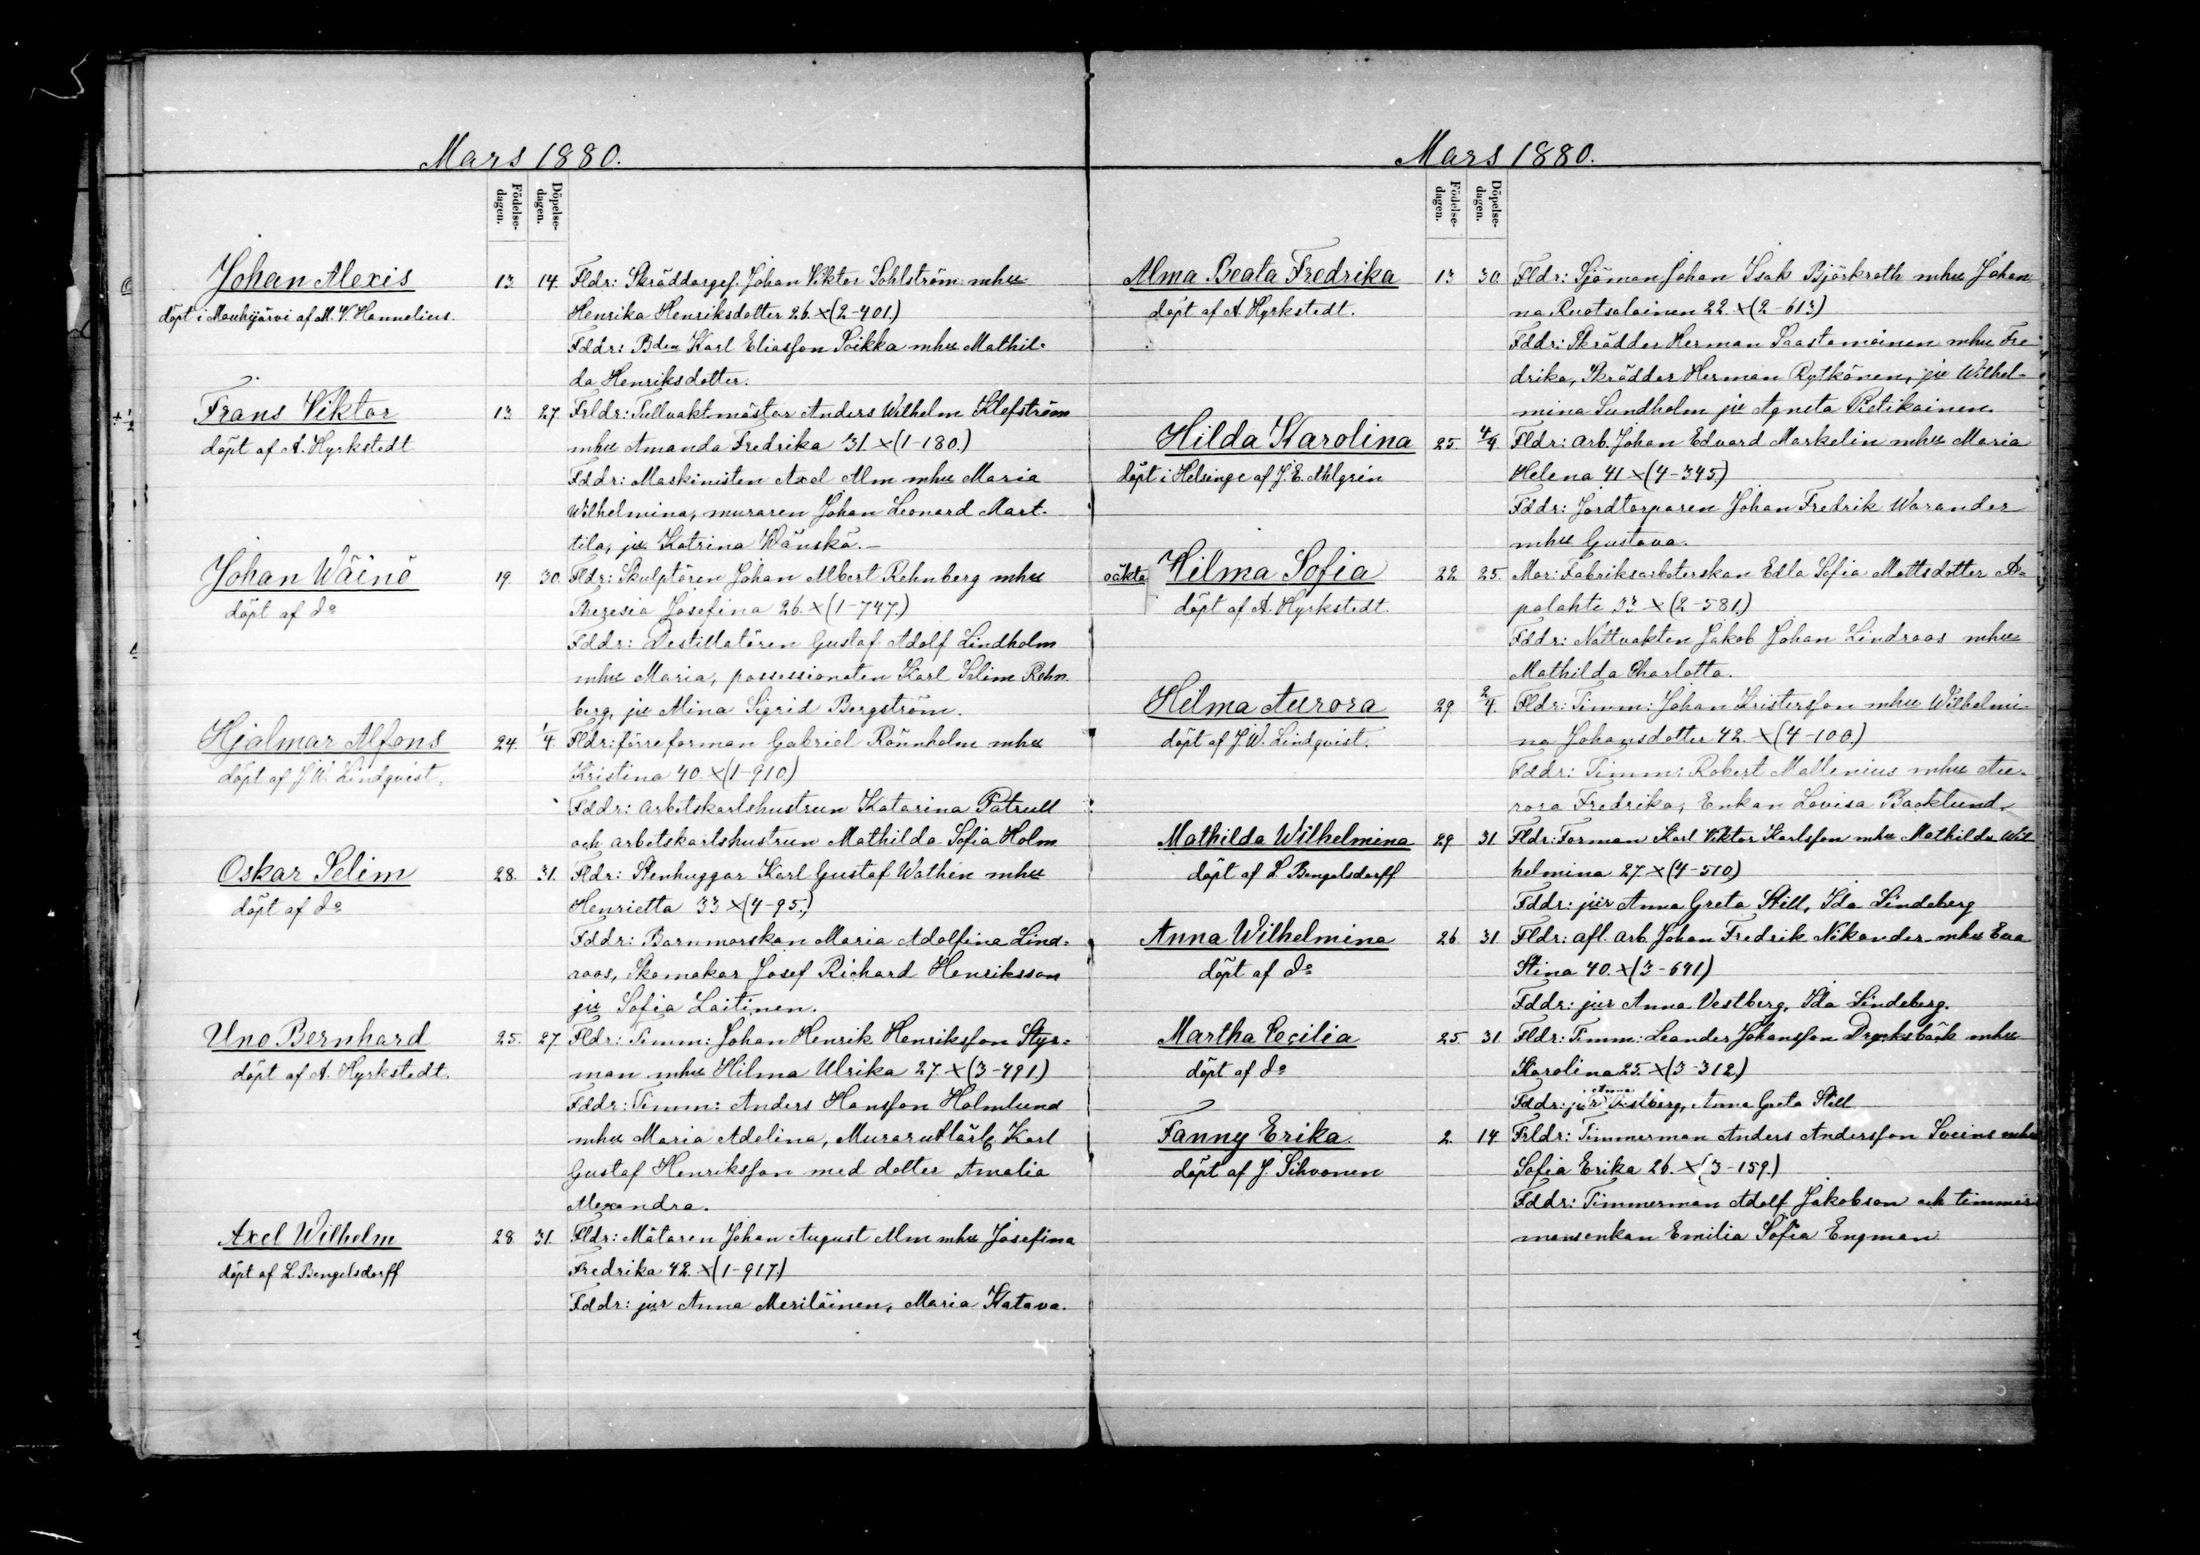 Mars 1880.
Födelse-dagen.
Döpelse-dagen.
Johan Alexis 13 14. Fldr: Skräddargef. Johan Viktor Sohlström mhu
döpt i Mouhijärvi af M. V. Hannelius. Henrika Henriksdotter 26. X (2-401.)
Fddr: Bden Karl Eliasson Soikka mhu Mathil-
da Henriksdotter.
Frans Viktor 13. 27. Frldr: Tullvaktmästar Anders Wilhelm Klefström
döpt af A. Hyrkstedt mhu Amanda Fredrika 31. X (1-180.)
Fddr: Maskinisten Axel Alm mhu Maria
Wilhelmina, muraren Johan Leonard Mart-
tila, ju Katrina Wänskä.
Johan Wäinö 19. 30. Fldr: Skulptören Johan Albert Rehnberg mhu
döpt af do Theresia Josefina 26. X (1-747.)
Fddr: Destillatören Gustaf Adolf Lindholm
mhu Maria, possessionaten Karl Selim Rehn-
berg, ju Mina Sigrid Bergström.
Hjalmar Alfons 24. 1/4. Fldr: förreforman Gabriel Rönnholm mhu
döpt af J. W. Lindqvist. Kristina 40. X (1-910.)
Fddr: arbetskarlshustrun Katarina Patrull
och arbetskarlshustrun Mathilda Sofia Holm
Oskar Selim 28. 31. Fldr: Stenhuggar Karl Gustaf Wathén mhu
döpt af do Henrietta 33 X (4-95.)
Fddr: Barnmorskan Maria Adolfina Lind-
roos, Skomakar Josef Richard Henriksson
ju Sofia Laitinen.
Uno Bernhard 25. 27. Fldr: Timm: Johan Henrik Henriksson Styr-
döpt af A. Hyrkstedt. man mhu Hilma Ulrika 27. X (3-491)
Fddr: Timm: Anders Hansson Holmlund
mhu Maria Adelina, Murar Karl
Gustaf Henriksson med dotter Amalia
Alexandra.
Axel Wilhelm 28 31. Fldr: Mätaren Johan August Alm mhu Josefina
döpt af L. Bengelsdorff Fredrika 42. X (1-917.)
Fddr: jur Anna Meriläinen, Maria Katava.
Mars 1880.
Födelse-dagen.
Döpelse-dagen.
Alma Beata Fredrika 13 30. Fldr: Sjöman Johan Isak Björkroth mhu Johan
döpt af A. Hyrkstedt. na Ruotsalainen 22. X (2-613)
Fddr: Skrädder Herman Saastamoinen mhu Fre
drika, Skrädder Herman Rytkönen, ju Wilhel-
mina Sundholm ju Agneta Pietikainen.
Hilda Karolina 25. 4/4 Fldr: arb. Johan Edvard Markelin mhu Maria
döpt i Helsinge af J. E. Ahlgrén Helena 41 X (4-345)
Fddr: Jordtorparen Johan Fredrik Warander
mhu Gustava.
oäkta Hilma Sofia 22. 25. Mor: Fabriksarbeterskan Edla Sofia Mattsdotter A-
döpt af A. Hyrkstedt. palahti 33 X (2-581.)
Fddr: Nattvakten Jakob Johan Lindroos mhu
Mathilda Charlotta.
Hilma Aurora 29. 2/4. Fldr: Timm: Johan Kristersson mhu Wilhelmi-
döpt af J. W. Lindqvist. na Johansdotter 42. X (4-100.)
Fddr: Timm: Robert Mallenius mhu Au-
rora Fredrika, Enkan Lovisa Backlund.
Mathilda Wilhelmina 29 31. Fldr: Forman Karl Viktor Karlsson mhu Mathilda Wil
döpt af L. Bengelsdorff helmina 27. X (4-510)
Fddr: jur Anna Greta Still, Ida Lindeberg
Anna Wilhelmina 26 31. Fldr: afl. arb. Johan Fredrik Nikander mhu Eva
döpt af do Stina 40. X (3-641)
Fddr: jur Anna Vestberg, Ida Lindeberg.
Martha Cecilia 25. 31 Fldr: Timm: Leander Johansson Drycksbäck mhu
döpt af do Karolina 25. X (3-312.)
Anna
Fddr: jur Vestberg, Anna Greta Still
Fanny Erika 2. 14. Frldr: Timmerman Anders Andersson Sveins mhu
döpt af J. Sihvonen Sofia Erika 26. X (3-159.)
Fddr: Timmerman Adolf Jakobson och timmer-
mansenkan Emilia Sofia Engman.